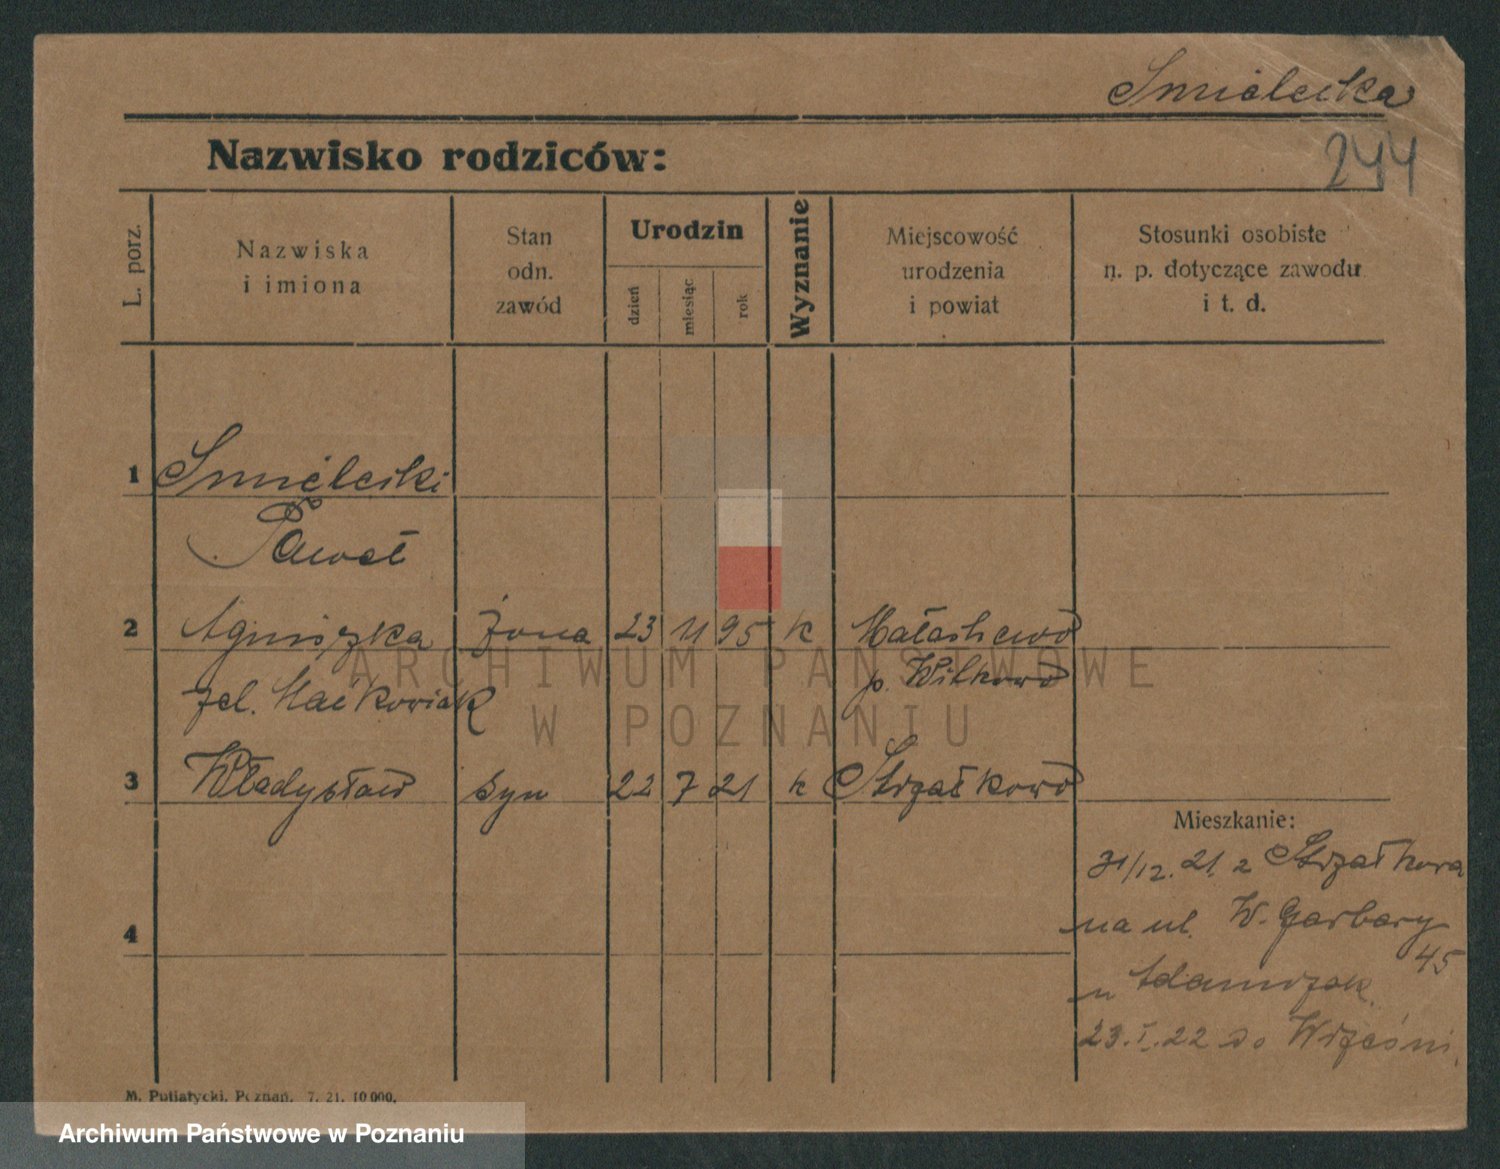 Śmielecka
244
Nazwisko rodziców:
L. porz.
Nazwiska
i imiona
Stan
odn.
zawód
Urodzin
dzień
miesiąc
rok
Wyznanie
Miejscowość
urodzenia
i powiat
Stosunki osobiste
n. p. dotyczące zawodu
i t. d.
1 Śmielecki
Paweł
2 Agniszka żona 23 11 95 k
zel. Maćkowiak p. Witkowo
3 Władysław syn 22 7 21 k Strzałkowo
4
Mieszkanie:
31/12. 21. z Strzałkowa
na ul. W. Garbary
45
u Adamczak
23. I. 22 do Wrześni.
M. Putiatycki, Poznań, 7. 21. 10 000.
ARCHIWUM PAŃSTWOWE
W POZNANIU
Archiwum Państwowe w Poznaniu